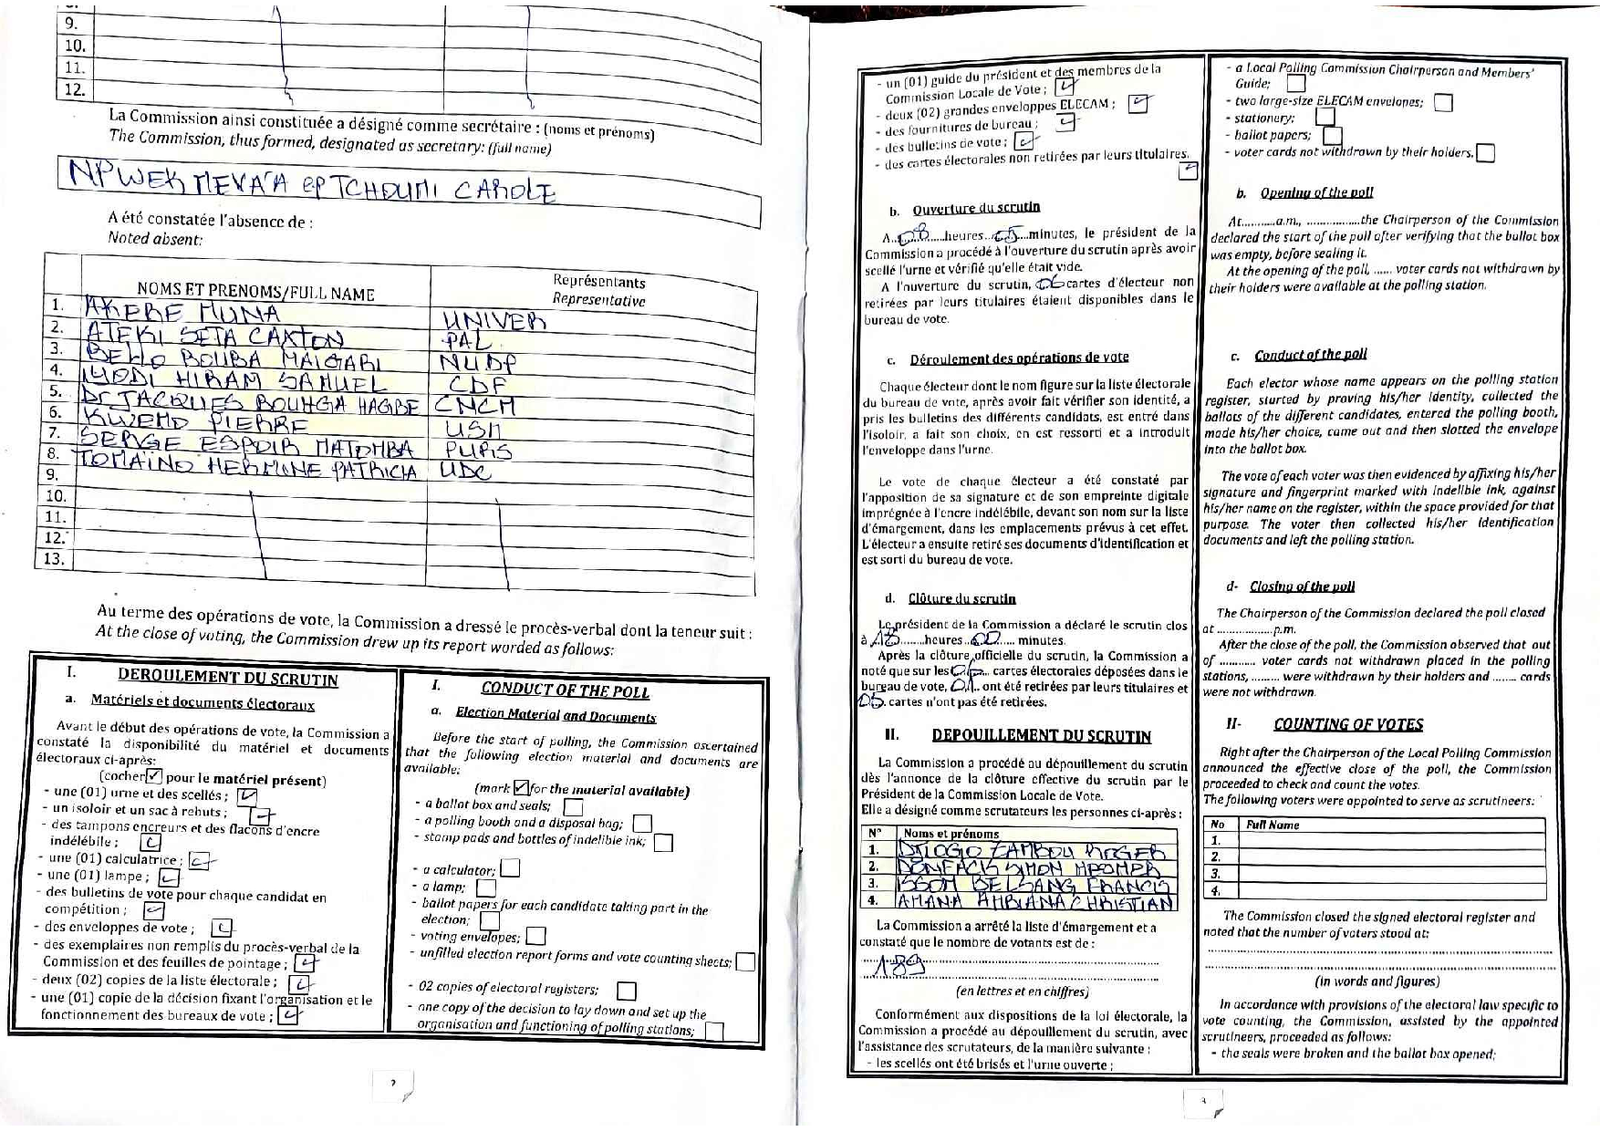 9.
10.
11.
12.
La Commission ainsi constituée a désigné comme secrétaire : (noms et prénoms)
The Commission, thus formed, designated as secretary: (full name)
NPWEK MEVA'A ep TCHOUMI CAROLE
A été constatée l'absence de :
Noted absent:
NOMS ET PRENOMS/FULL NAME Représentants
Representative
1. AKERE MUNA UNIVER
2. ATEKI SETA CAXTON PAL
3. BELLO BOUBA MAIGARI NUDP
4. IYODI HIRAM SAMUEL CDF
5. Dr JACQUES BOUHGA HAGBE CNCM
6. KWEMO PIERRE USM
7. SERGE ESPOIR MATOMBA PURS
8. TOMAINO HERMINE PATRICIA UDC
9.
10.
11.
12.
13.
Au terme des opérations de vote, la Commission a dressé le procès-verbal dont la teneur suit :
At the close of voting, the Commission drew up its report worded as follows:
I. DEROULEMENT DU SCRUTIN
a. Matériels et documents électoraux
Avant le début des opérations de vote, la Commission a
constaté la disponibilité du matériel et documents
électoraux ci-après:
(cocher pour le matériel présent)
- une (01) urne et des scellés ;
- un isoloir et un sac à rebuts ;
- des tampons encreurs et des flacons d'encre
indélébile ;
- une (01) calculatrice ;
- une (01) lampe ;
- des bulletins de vote pour chaque candidat en
compétition ;
- des enveloppes de vote ;
- des exemplaires non remplis du procès-verbal de la
Commission et des feuilles de pointage ;
- deux (02) copies de la liste électorale ;
- une (01) copie de la décision fixant l'organisation et le
fonctionnement des bureaux de vote ;
I. CONDUCT OF THE POLL
a. Election Material and Documents
Before the start of polling, the Commission ascertained
that the following election material and documents are
available:
(mark for the material available)
- a ballot box and seals;
- a polling booth and a disposal bag;
- stamp pads and bottles of indelible ink;
- a calculator;
- a lamp;
- ballot papers for each candidate taking part in the
election;
- voting envelopes;
- unfilled election report forms and vote counting sheets;
- 02 copies of electoral registers;
- one copy of the decision to lay down and set up the
organisation and functioning of polling stations;
2
- un (01) guide du président et des membres de la
Commission Locale de Vote ;
- deux (02) grandes enveloppes ELECAM ;
- des fournitures de bureau ;
- des bulletins de vote ;
- des cartes électorales non retirées par leurs titulaires.
b. Ouverture du scrutin
A..08.....heures...05....minutes, le président de la
Commission a procédé à l'ouverture du scrutin après avoir
scellé l'urne et vérifié qu'elle était vide.
A l'ouverture du scrutin, 06 cartes d'électeur non
retirées par leurs titulaires étaient disponibles dans le
bureau de vote.
c. Déroulement des opérations de vote
Chaque électeur dont le nom figure sur la liste électorale
du bureau de vote, après avoir fait vérifier son identité, a
pris les bulletins des différents candidats, est entré dans
l'isoloir, a fait son choix, en est ressorti et a introduit
l'enveloppe dans l'urne.
Le vote de chaque électeur a été constaté par
l'apposition de sa signature et de son empreinte digitale
imprégnée à l'encre indélébile, devant son nom sur la liste
d'émargement, dans les emplacements prévus à cet effet.
L'électeur a ensuite retiré ses documents d'identification et
est sorti du bureau de vote.
d. Clôture du scrutin
Le président de la Commission a déclaré le scrutin clos
à 18.....heures...00..... minutes.
Après la clôture officielle du scrutin, la Commission a
noté que sur les 06.... cartes électorales déposées dans le
bureau de vote, 01.. ont été retirées par leurs titulaires et
05. cartes n'ont pas été retirées.
II. DEPOUILLEMENT DU SCRUTIN
La Commission a procédé au dépouillement du scrutin
dès l'annonce de la clôture effective du scrutin par le
Président de la Commission Locale de Vote.
Elle a désigné comme scrutateurs les personnes ci-après :
N° Noms et prénoms
1. ZAMBOU ROGER
2. SIMON
3. ISSOM BELSANG FRANCIS
4. AMANA AMBIANA CHRISTIAN
La Commission a arrêté la liste d'émargement et a
constaté que le nombre de votants est de :
189
(en lettres et en chiffres)
Conformément aux dispositions de la loi électorale, la
Commission a procédé au dépouillement du scrutin, avec
l'assistance des scrutateurs, de la manière suivante :
- les scellés ont été brisés et l'urne ouverte ;
- a Local Polling Commission Chairperson and Members'
Guide;
- two large-size ELECAM envelopes;
- stationery;
- ballot papers;
- voter cards not withdrawn by their holders.
b. Opening of the poll
At..........a.m., .................the Chairperson of the Commission
declared the start of the poll after verifying that the ballot box
was empty, before sealing it.
At the opening of the poll, ...... voter cards not withdrawn by
their holders were available at the polling station.
c. Conduct of the poll
Each elector whose name appears on the polling station
register, started by proving his/her identity, collected the
ballots of the different candidates, entered the polling booth,
made his/her choice, came out and then slotted the envelope
into the ballot box.
The vote of each voter was then evidenced by affixing his/her
signature and fingerprint marked with indelible ink, against
his/her name on the register, within the space provided for that
purpose. The voter then collected his/her identification
documents and left the polling station.
d- Closing of the poll
The Chairperson of the Commission declared the poll closed
at .................p.m.
After the close of the poll, the Commission observed that out
of ........... voter cards not withdrawn placed in the polling
stations, ......... were withdrawn by their holders and ....... cards
were not withdrawn.
II- COUNTING OF VOTES
Right after the Chairperson of the Local Polling Commission
announced the effective close of the poll, the Commission
proceeded to check and count the votes.
The following voters were appointed to serve as scrutineers:
No Full Name
1.
2.
3.
4.
The Commission closed the signed electoral register and
noted that the number of voters stood at:
(in words and figures)
In accordance with provisions of the electoral law specific to
vote counting, the Commission, assisted by the appointed
scrutineers, proceeded as follows:
- the seals were broken and the ballot box opened;
3